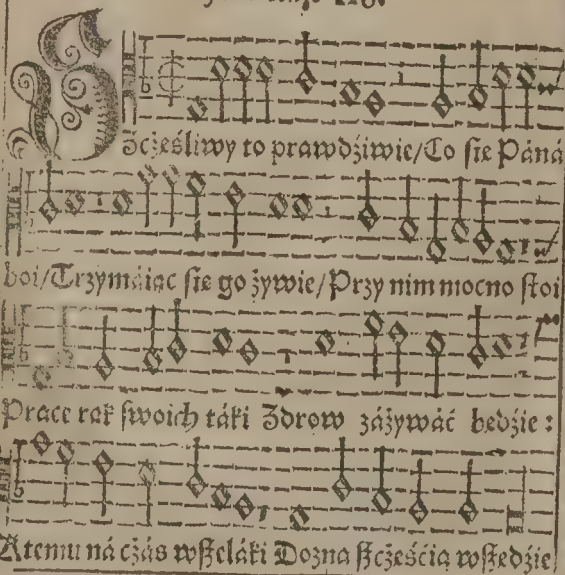 Szcześliwy to prawdźiwie/Co sie Páná
boi/Trzymáiąc sie go żywie/Przy nim mocno stoi
Prace rąk swoich táki Zdrow záżywáć będźie:
A temu ná cżás wszeláki Dozna szcżeśćia wszędźie